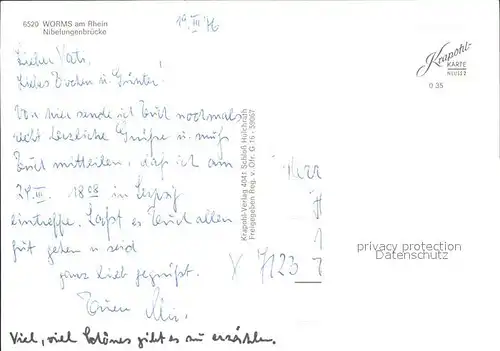 6520 WORMS am Rhein
Nibelungenbrücke
19. III 76
Lieber Vati,
Liebes Evchen u. Günter!
Von hier sende ich Euch nochmals
recht herzliche Grüße u. muß
Euch mitteilen, daß ich am
24. III. 18 08 in Leipzig
eintreffe. Laßt es Euch allen
gut gehen u. seid
ganz lieb gegrüßt.
Euer
Viel, viel Schönes gibt es zu erzählen.
Krapohl-Verlag 4041 Schloß Hülchrath
Freigegeben Reg. v. Ofr. G 16 - 30067
Krapohl-
KARTE
0 35
Herr
7123
privacy protection
Datenschutz